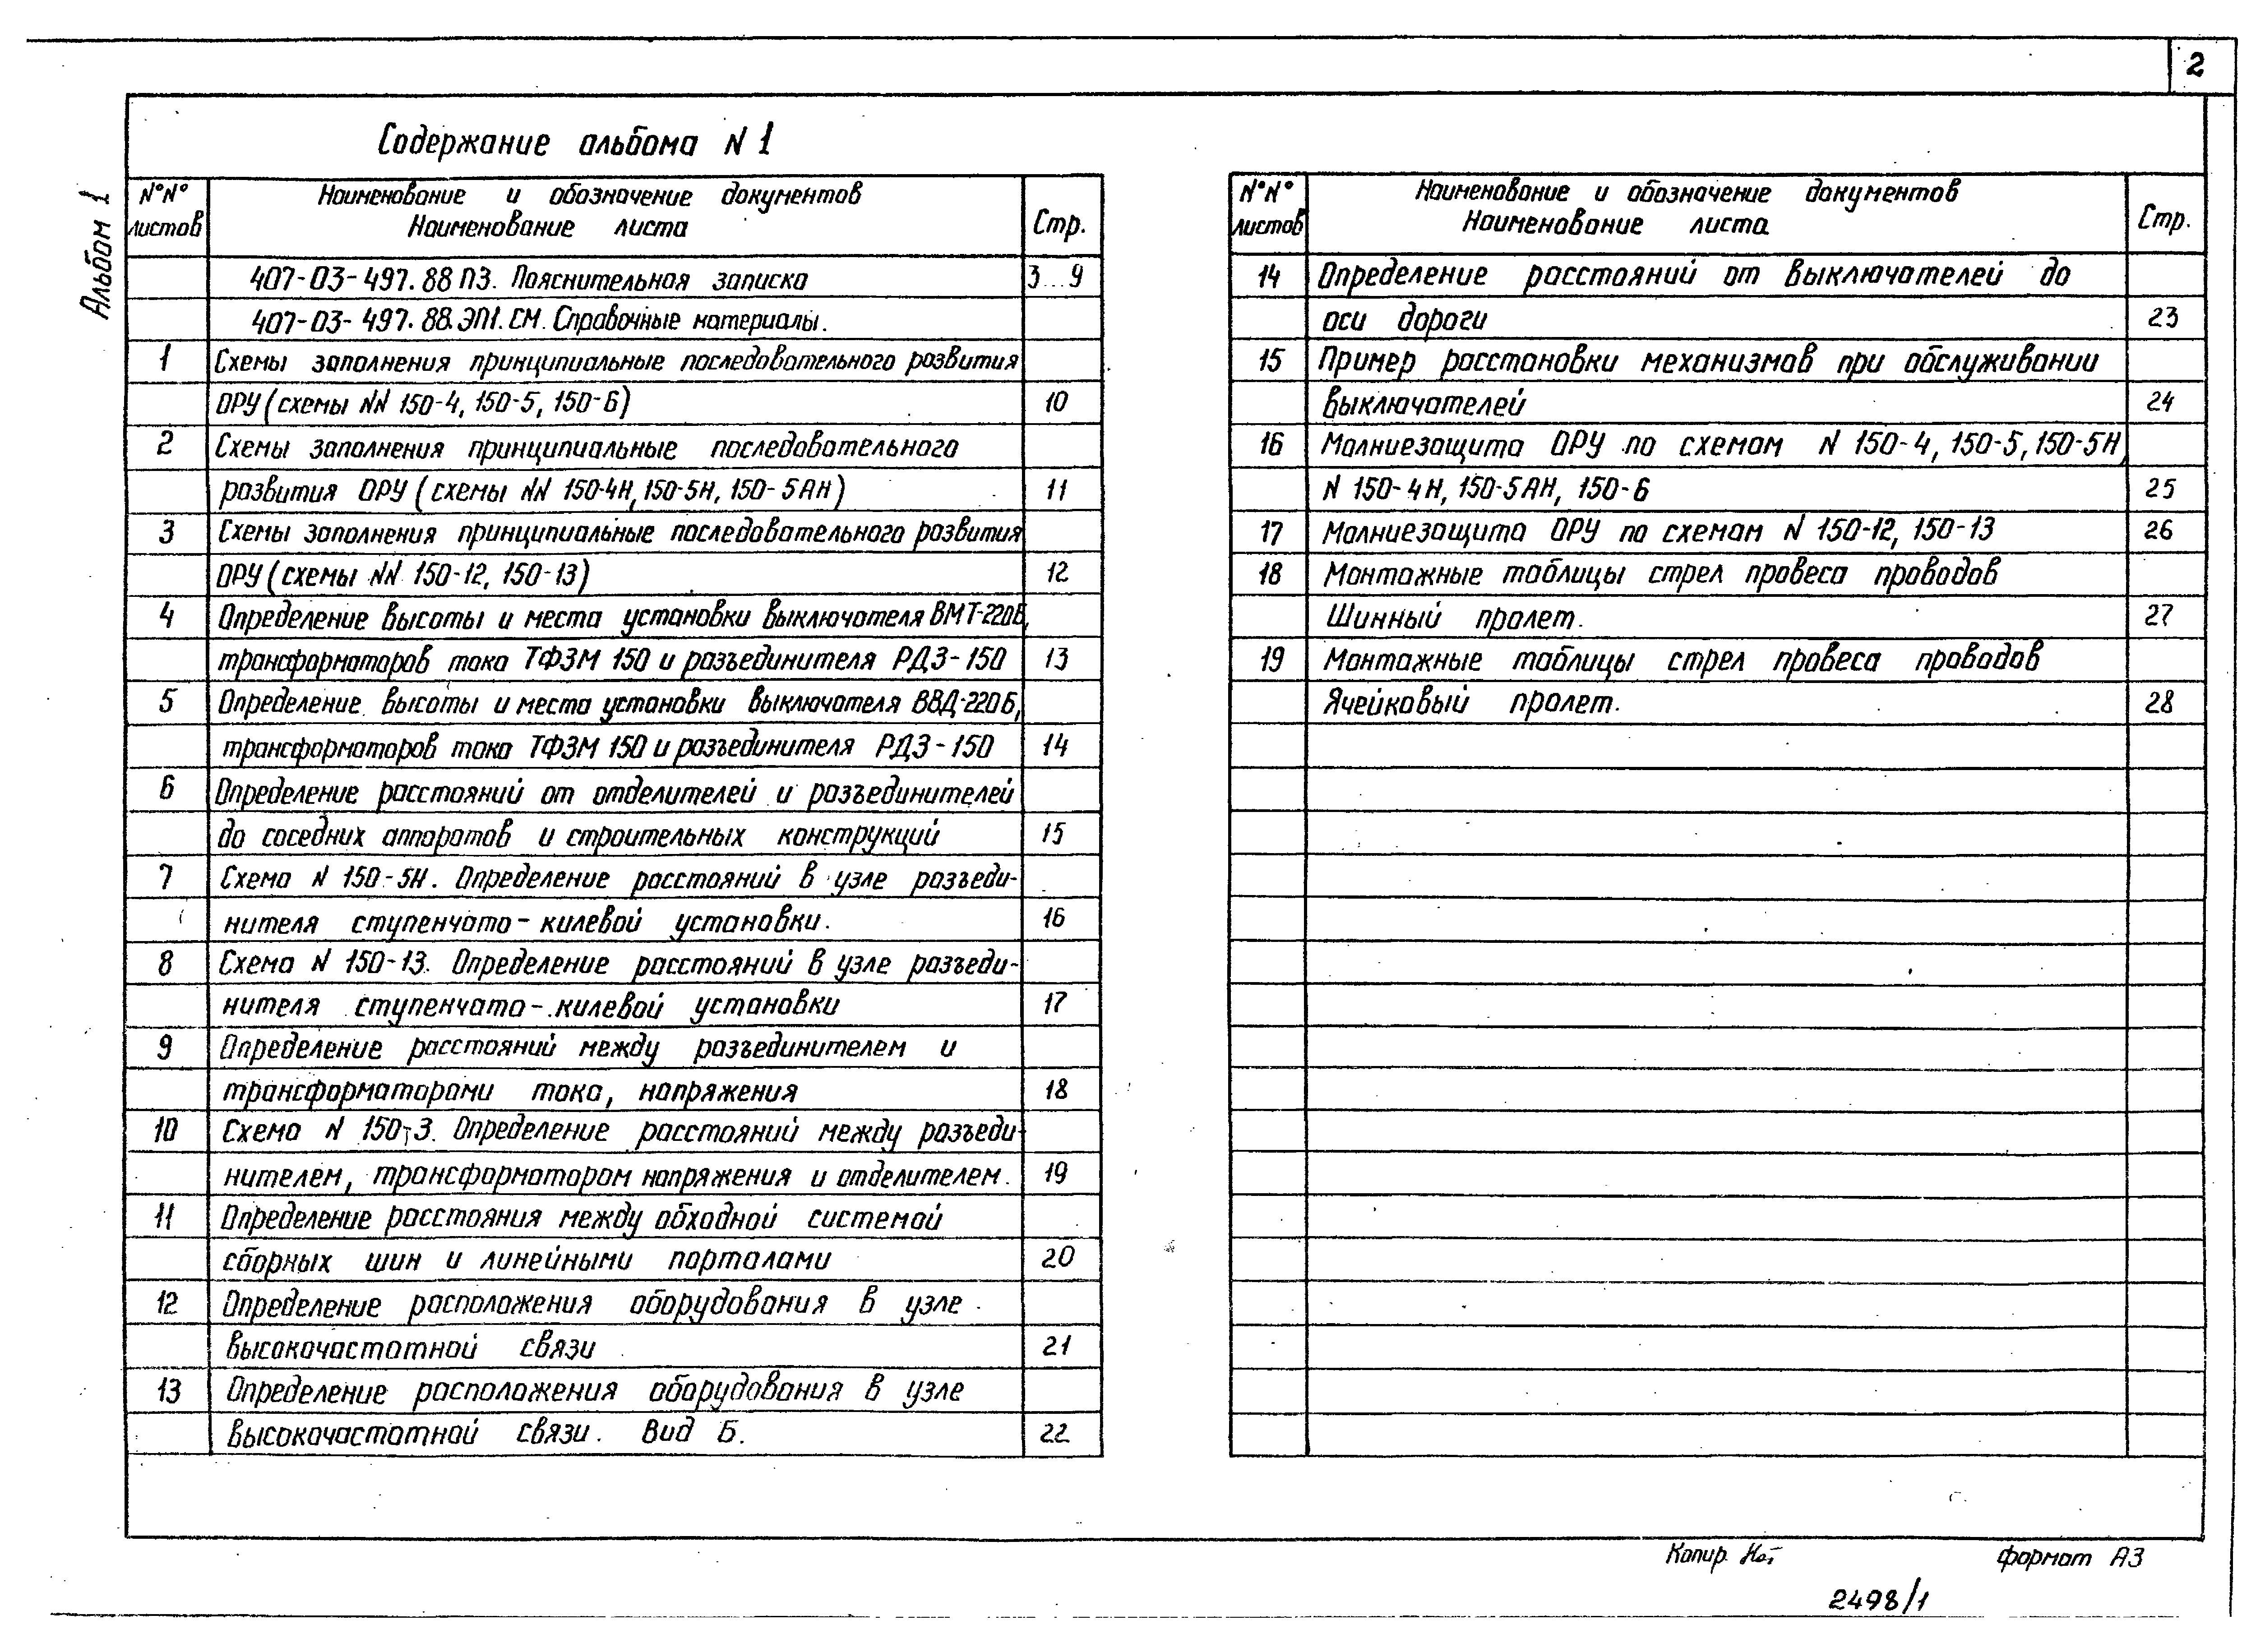 2
Альбом 1
Содержание альбома N 1
N°N° листов
Наименование и обозначение документов
Наименование листа
Стр.
407-03-497.88 ПЗ. Пояснительная записка 3...9
407-03-497.88.ЭП1.СМ. Справочные материалы.
1 Схемы заполнения принципиальные последовательного развития
ОРУ (схемы NN 150-4, 150-5, 150-6) 10
2 Схемы заполнения принципиальные последовательного
развития ОРУ (схемы NN 150-4Н, 150-5Н, 150-5АН) 11
3 Схемы заполнения принципиальные последовательного развития
ОРУ (схемы NN 150-12, 150-13) 12
4 Определение высоты и места установки выключателя ВМТ-220Б,
трансформаторов тока ТФЗМ 150 и разъединителя РДЗ-150 13
5 Определение высоты и места установки выключателя ВВД-220Б,
трансформаторов тока ТФЗМ 150 и разъединителя РДЗ-150 14
6 Определение расстояний от отделителей и разъединителей
до соседних аппаратов и строительных конструкций 15
7 Схема N 150-5Н. Определение расстояний в узле разъеди-
нителя ступенчато-килевой установки. 16
8 Схема N 150-13. Определение расстояний в узле разъеди-
нителя ступенчато-килевой установки 17
9 Определение расстояний между разъединителем и
трансформаторами тока, напряжения 18
10 Схема N 150-3. Определение расстояний между разъеди-
нителем, трансформатором напряжения и отделителем. 19
11 Определение расстояния между обходной системой
сборных шин и линейными порталами 20
12 Определение расположения оборудования в узле
высокочастотной связи 21
13 Определение расположения оборудования в узле
высокочастотной связи. Вид Б. 22
N°N° листов
Наименование и обозначение документов
Наименование листа
Стр.
14 Определение расстояний от выключателей до
оси дороги 23
15 Пример расстановки механизмов при обслуживании
выключателей 24
16 Молниезащита ОРУ по схемам N 150-4, 150-5, 150-5Н,
N 150-4Н, 150-5АН, 150-6 25
17 Молниезащита ОРУ по схемам N 150-12, 150-13 26
18 Монтажные таблицы стрел провеса проводов
Шинный пролет. 27
19 Монтажные таблицы стрел провеса проводов
Ячейковый пролет. 28
Копир. формат А3
2498/1